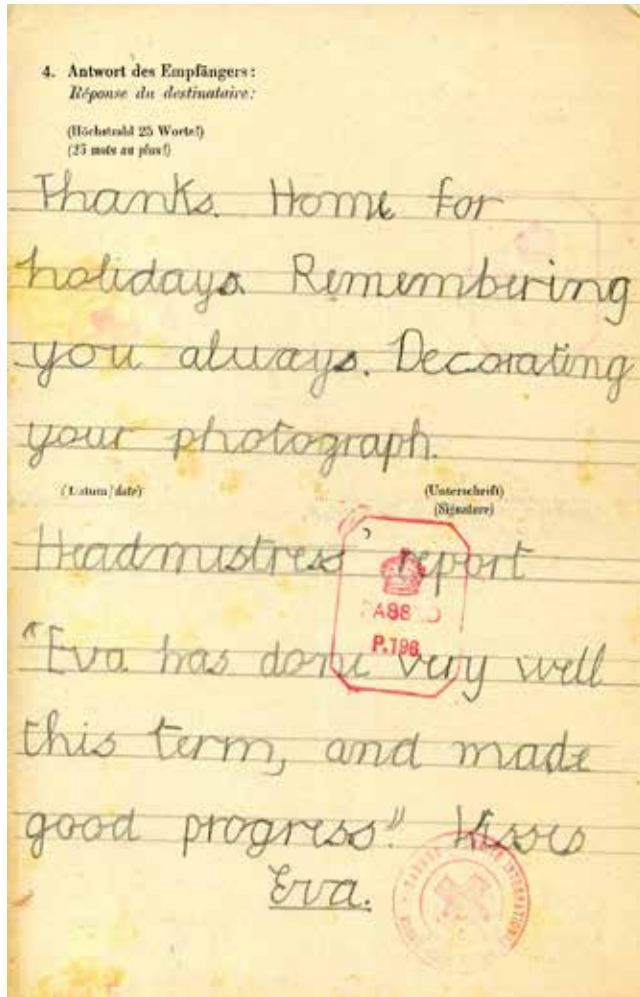 4. Antwort des Empfängers:
Réponse du destinataire:
(Höchstzahl 25 Worte!)
(25 mots au plus!)
Thanks. Home for
holidays. Remembering
you always. Decorating
your photograph.
(Datum/date)
(Unterschrift)
(Signature)
Headmistress report
PASSED
P.198
"Eva has done very well
this term, and made
good progress." Kisses
Eva.